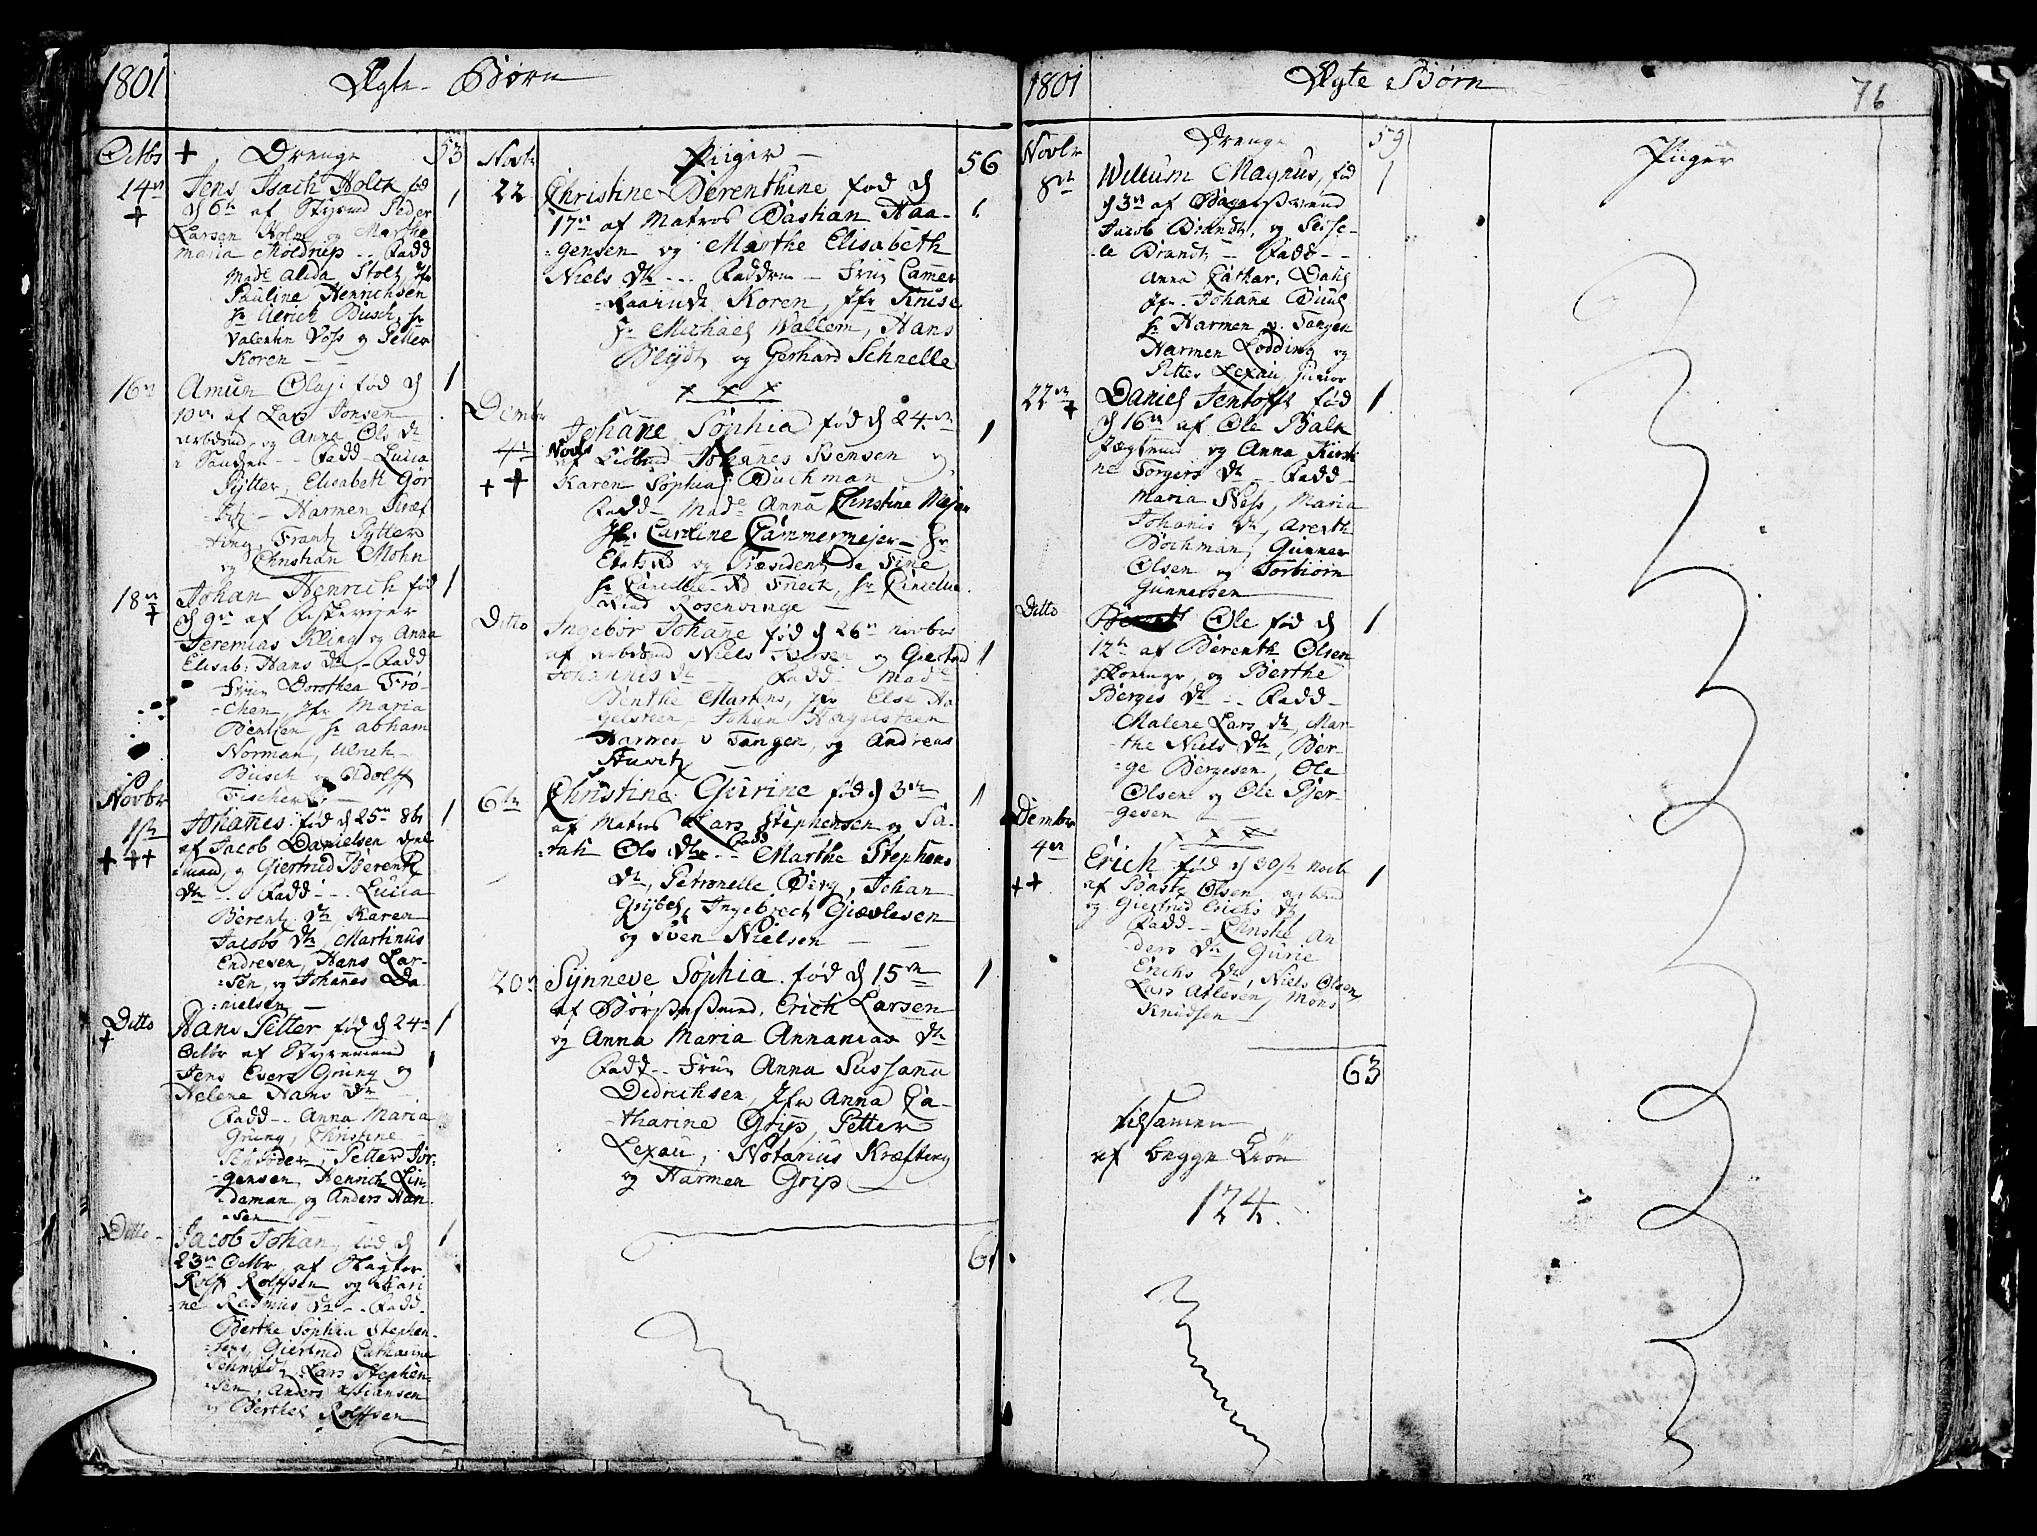 1801 Ægte Børn
Octbr + Drenge 53
14de Jens Isach Holck fød 1
+ d 6te af Styrmd Peder
Larsen Holm og Marthe
Maria Moldrup - Fadd
Made Alida Stoltz Jfr
Pauline Henrichsen
Hr Ulrich Busch, Hr
Valentin Voss og Petter
Koren
16de Amun Olaj: fød d 1
10de af Lars Jonsen
arbdmd, og Anna Ols Dtr
i Sandv. - Fadd - Lucia
Pÿtter, Elisabeth Gør
Harmen Kræf
ting, Frantz Pÿtter
og Christian Mohn
18de Johan Henrich fød 1
+ d 9de af Fisker
Jeremias og Anna
Elisab: Hans Dtr - Fadd
Frue Dorothea Frø-
chen, Jfr Maria
Bentzen Hr Abham
Norman, Ulrich
Busch og Adolff
Fischer
Novbr
1ste Johannes fød d 25de 8br 1
+ ++ af Jacob Danielsen
og Giertrud Berentz
Dtr - Fadd - Lucia
Berentz Dtr Karen
Jacobs Dtr, Martinus
Endresen, Hans Lar-
sen, og Johannes Da-
nielsen
Ditto Hans Petter fød d 24de 1
+ Octbr af Styremand
Jens Evers Grung og
Helene Hans Dtr
Fadd - Anna Maria
Grung, Christine
Petter Jør-
gensen, Henrich Lin-
deman og Anders Han-
sen
Ditto - Jacob Johan, fød d 1
23de Octbr af
Rolff Rolffsen og Kari-
ne Rasmus Dtr - Fadd
Berthe Sophia Stephen-
sens, Giertrud Catharine
Schmidt, Lars Stephen-
sen, Anders Christiansen
og Berthel Rolffsen
Novbr Piger 56
22 Christine Berenthine fød d
17de af Matros Bastian Haa- 1
gensen og Marthe Elisabeth
Niels Dtr - Faddrne - Frue Camer
Raadinde Koren, Jfr Kruse
Hr Michael Wallem, Hans
Blÿdt og Gerhard Schnelle
x x x
Dcembr Johanne Sophia fød d 24de 1
4de Novbr af Johannes Bensen og
+ + Karen Sophia Buchman
Fadd - Made Anna Christine Mejer
Jfr Caroline Cammermejer - Hr
Etatsrd og Præsident de Fine
Hr Friech, Hr
Rosenvinge
Ditto Ingebor Johanne fød d 26de novbr
af arbdmd Niels Iversen og Giertrud 1
Johannis Dtr Fadd Made
Benthe Martens, Jfr Else Ha
gelsteen - Johan Hagelsteen
Harmen v Tangen, og Andreas
Huvitz
6te Christine Gurine fød d 3de 1
af Matros Lars Stephensen og Ta-
Ols Dtr - Fadd Marthe Stephens
Dtr, Petronelle Berg, Johan
Grÿbel, Ingebrecht Giævlesen
og Sven Nielsen
20de Sÿnneve Sophia fød d 15de 1
af Børssesvend Erich Larsen
og Anna Maria Annanias Dtr
Fadd - Frue Anna Sussanna
Didrichsen, Jfr Anna Ca-
tharine Grip, Petter
Lexau, Notarius Kræfting
og Harmen Grip
61
1801 Ægte Børn 76
Novbr Drenge 59 Piger
8de Willum Magnus, fød 1
d 3de af Bagersvend
Jacob Brandt, og Seise-
le Brandt - Fadd -
Anna Cathar. Dahl
Jfr. Johanne Buuch
Hr Harmen v. Tangen
Harmen Lodding og
Petter Lexau, junior
22de Daniel Jentofft fød 1
+ d 16de af Ole Balk
Jægtmd og Anna Kirsti
ne Torgiers Dtr - Fadd -
Maria Ness, Maria
Johanis Dtr, Arenth
Bochman, Gunner
Olsen og Torbiørn
Gunnersen
Ditto Ole fød d 1
12te af Berenth Olsen
og Berthe
Berges Dtr - Fadd -
Malene Lars Dtr, Mar-
the Niels Dtr, Ber-
ge Bergesen, Ole
Olsen og Ole Bjer-
gesen
Dcembr x x x
4de Erich fød d 30te Novb
++ af Baste Olsen arbmd 1
og Giertrud Erichs Dtr
Fadd - Christe An
ders Dtr, Gurie
Erichs Dtr, Niels Olsen,
Lars Atlesen, Mons
Knudsen
63
tilsamen
af begge Kiøn
124.